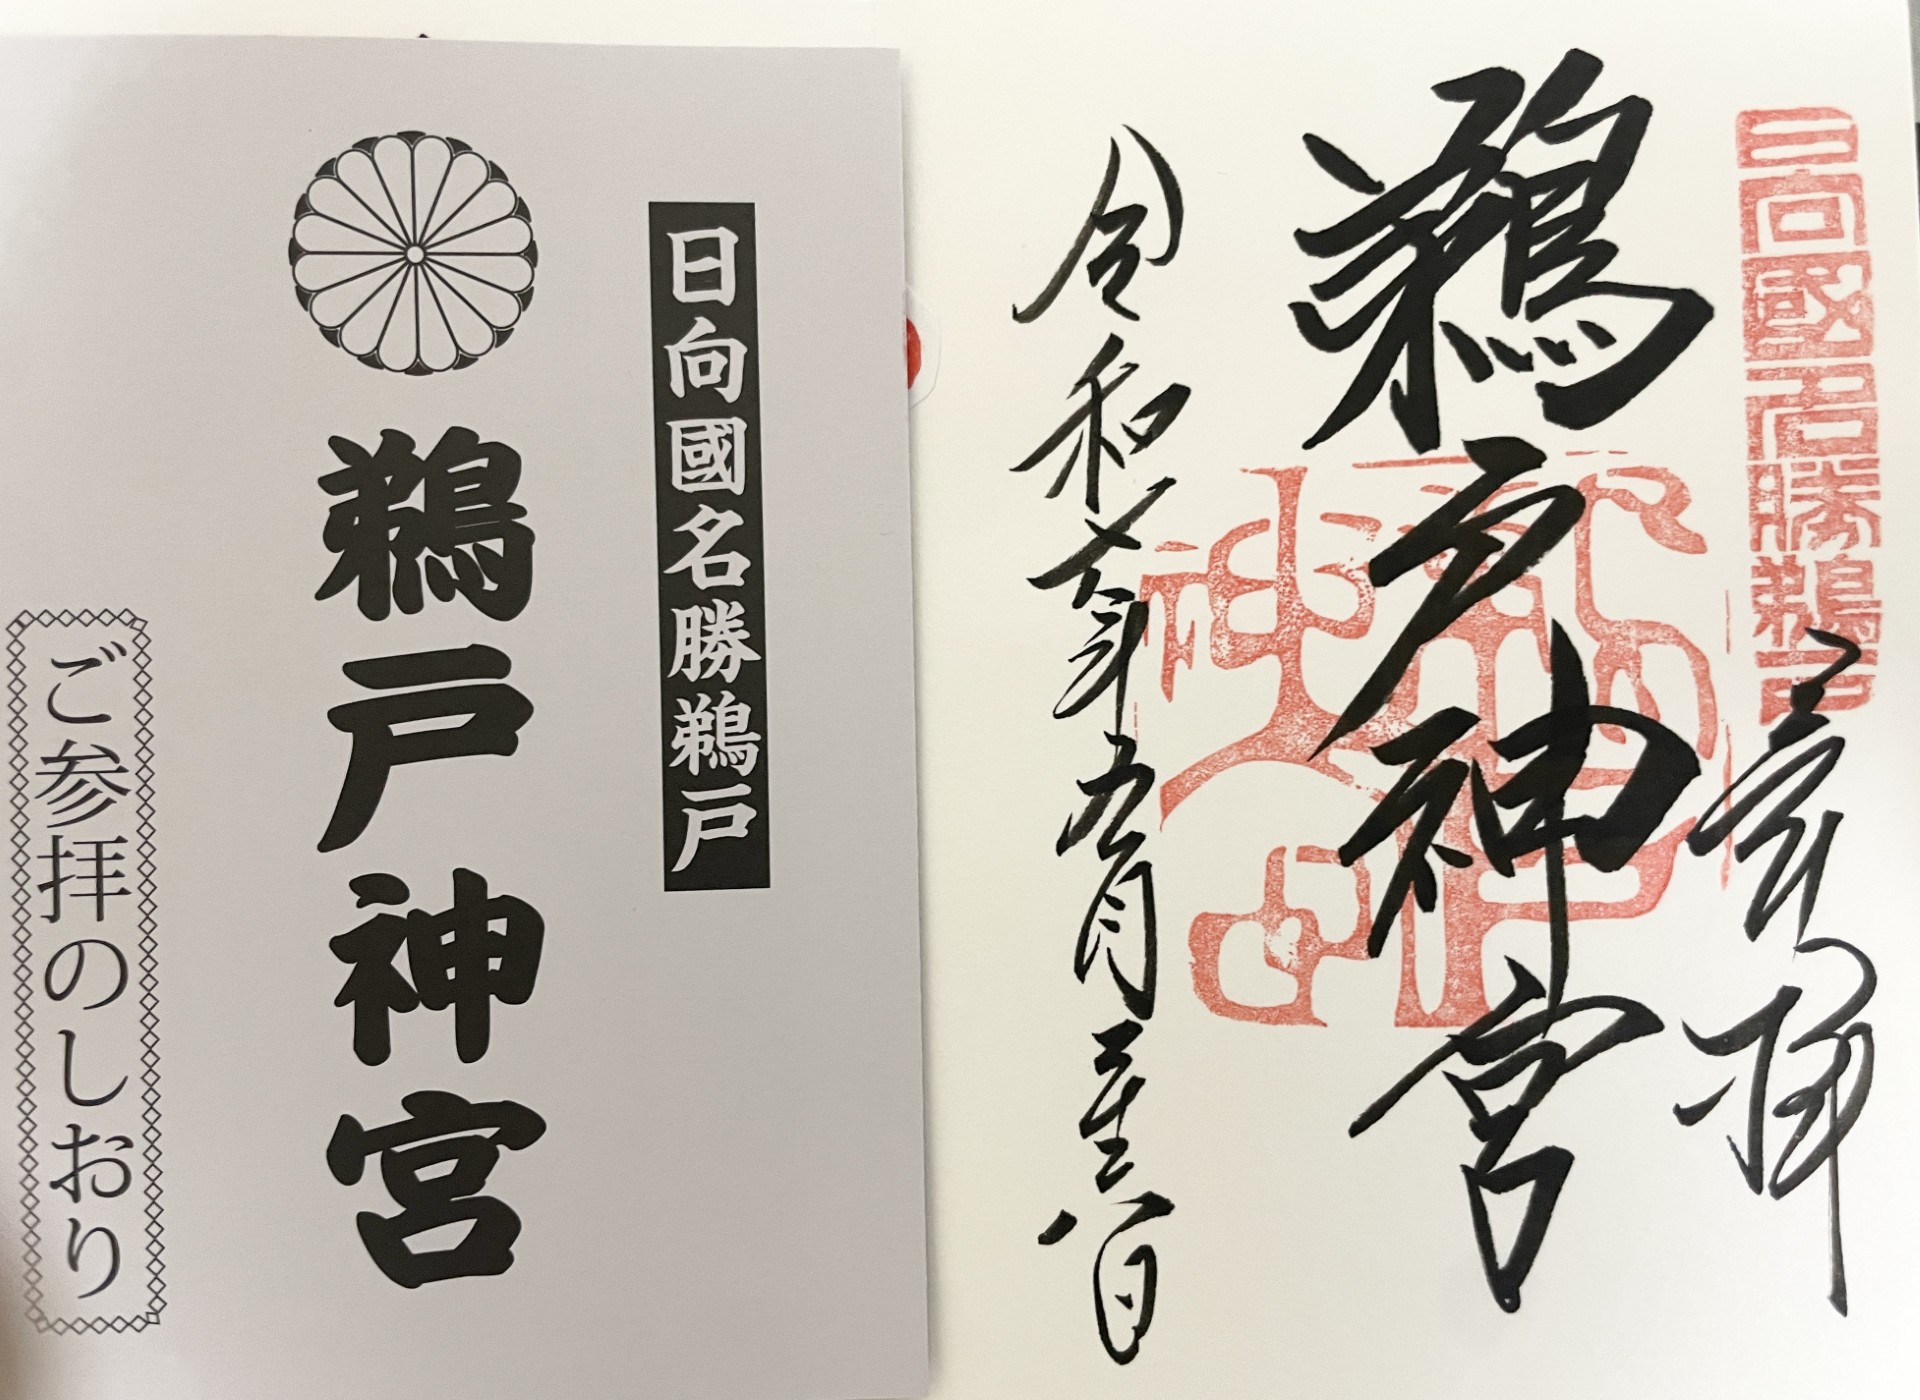 日向國名勝鵜戸
奉拝
鵜戸神宮
令和七年五月二十八日
日向國名勝鵜戸
鵜戸神宮
ご参拝のしおり